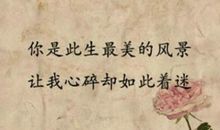 你是此生最美的风景
让我心碎却如此着迷